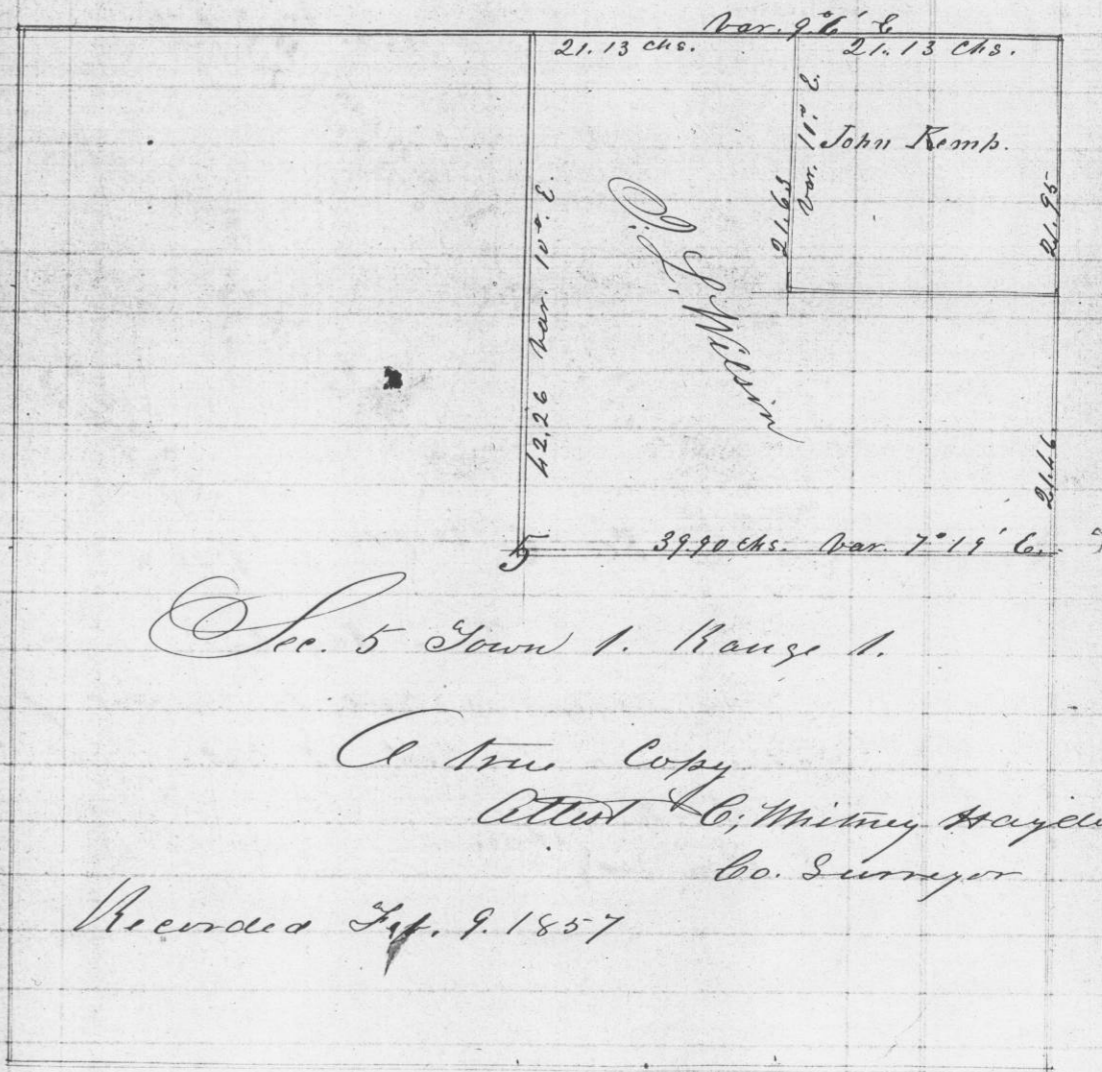 Var. 9° 6' E
21.13 chs. 21.13 chs.
Var. 11° E.
John Kemp.
21.63
21.95
42.26 Var. 10° E.
Wilson
21.46
5
39.90 chs. Var. 7° 19' E.
Sec. 5 Town 1. Range 1.
A true Copy
Attest C. Whitney Hayde
Co. Surveyor
Recorded Feb. 9. 1857